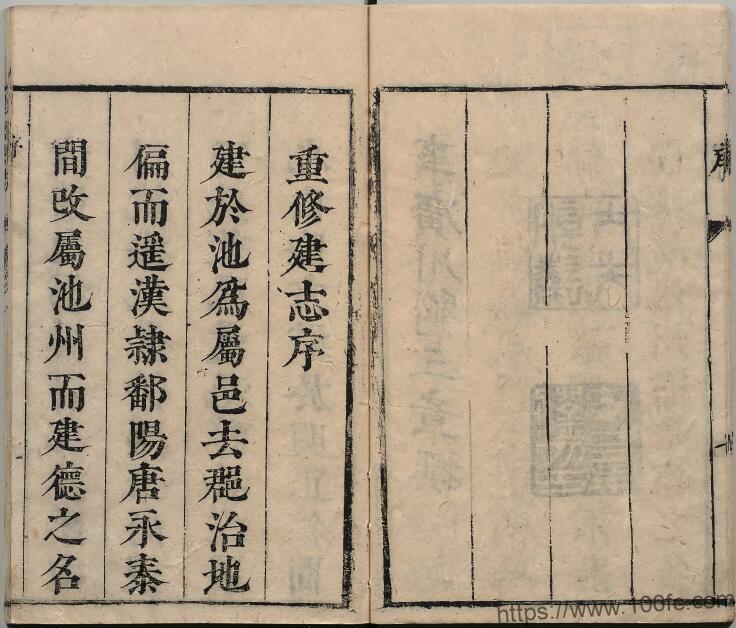 重修建志序
建於池爲屬邑去郡治地
偏而遥漢隷鄱陽唐永泰
間改屬池州而建德之名
序
https://www.100fe.com